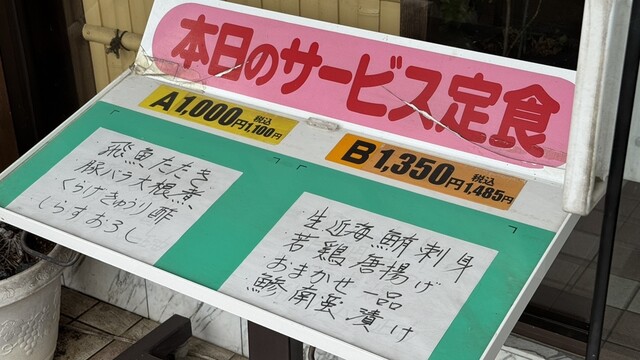 本日のサービス定食
A1,000円税込1,100円
飛魚たたき
豚バラ大根煮
くらげきゅうり酢
しらすおろし
B1,350円税込1,485円
生近海鮪刺身
若鶏唐揚げ
おまかせ一品
鯵南蛮漬け